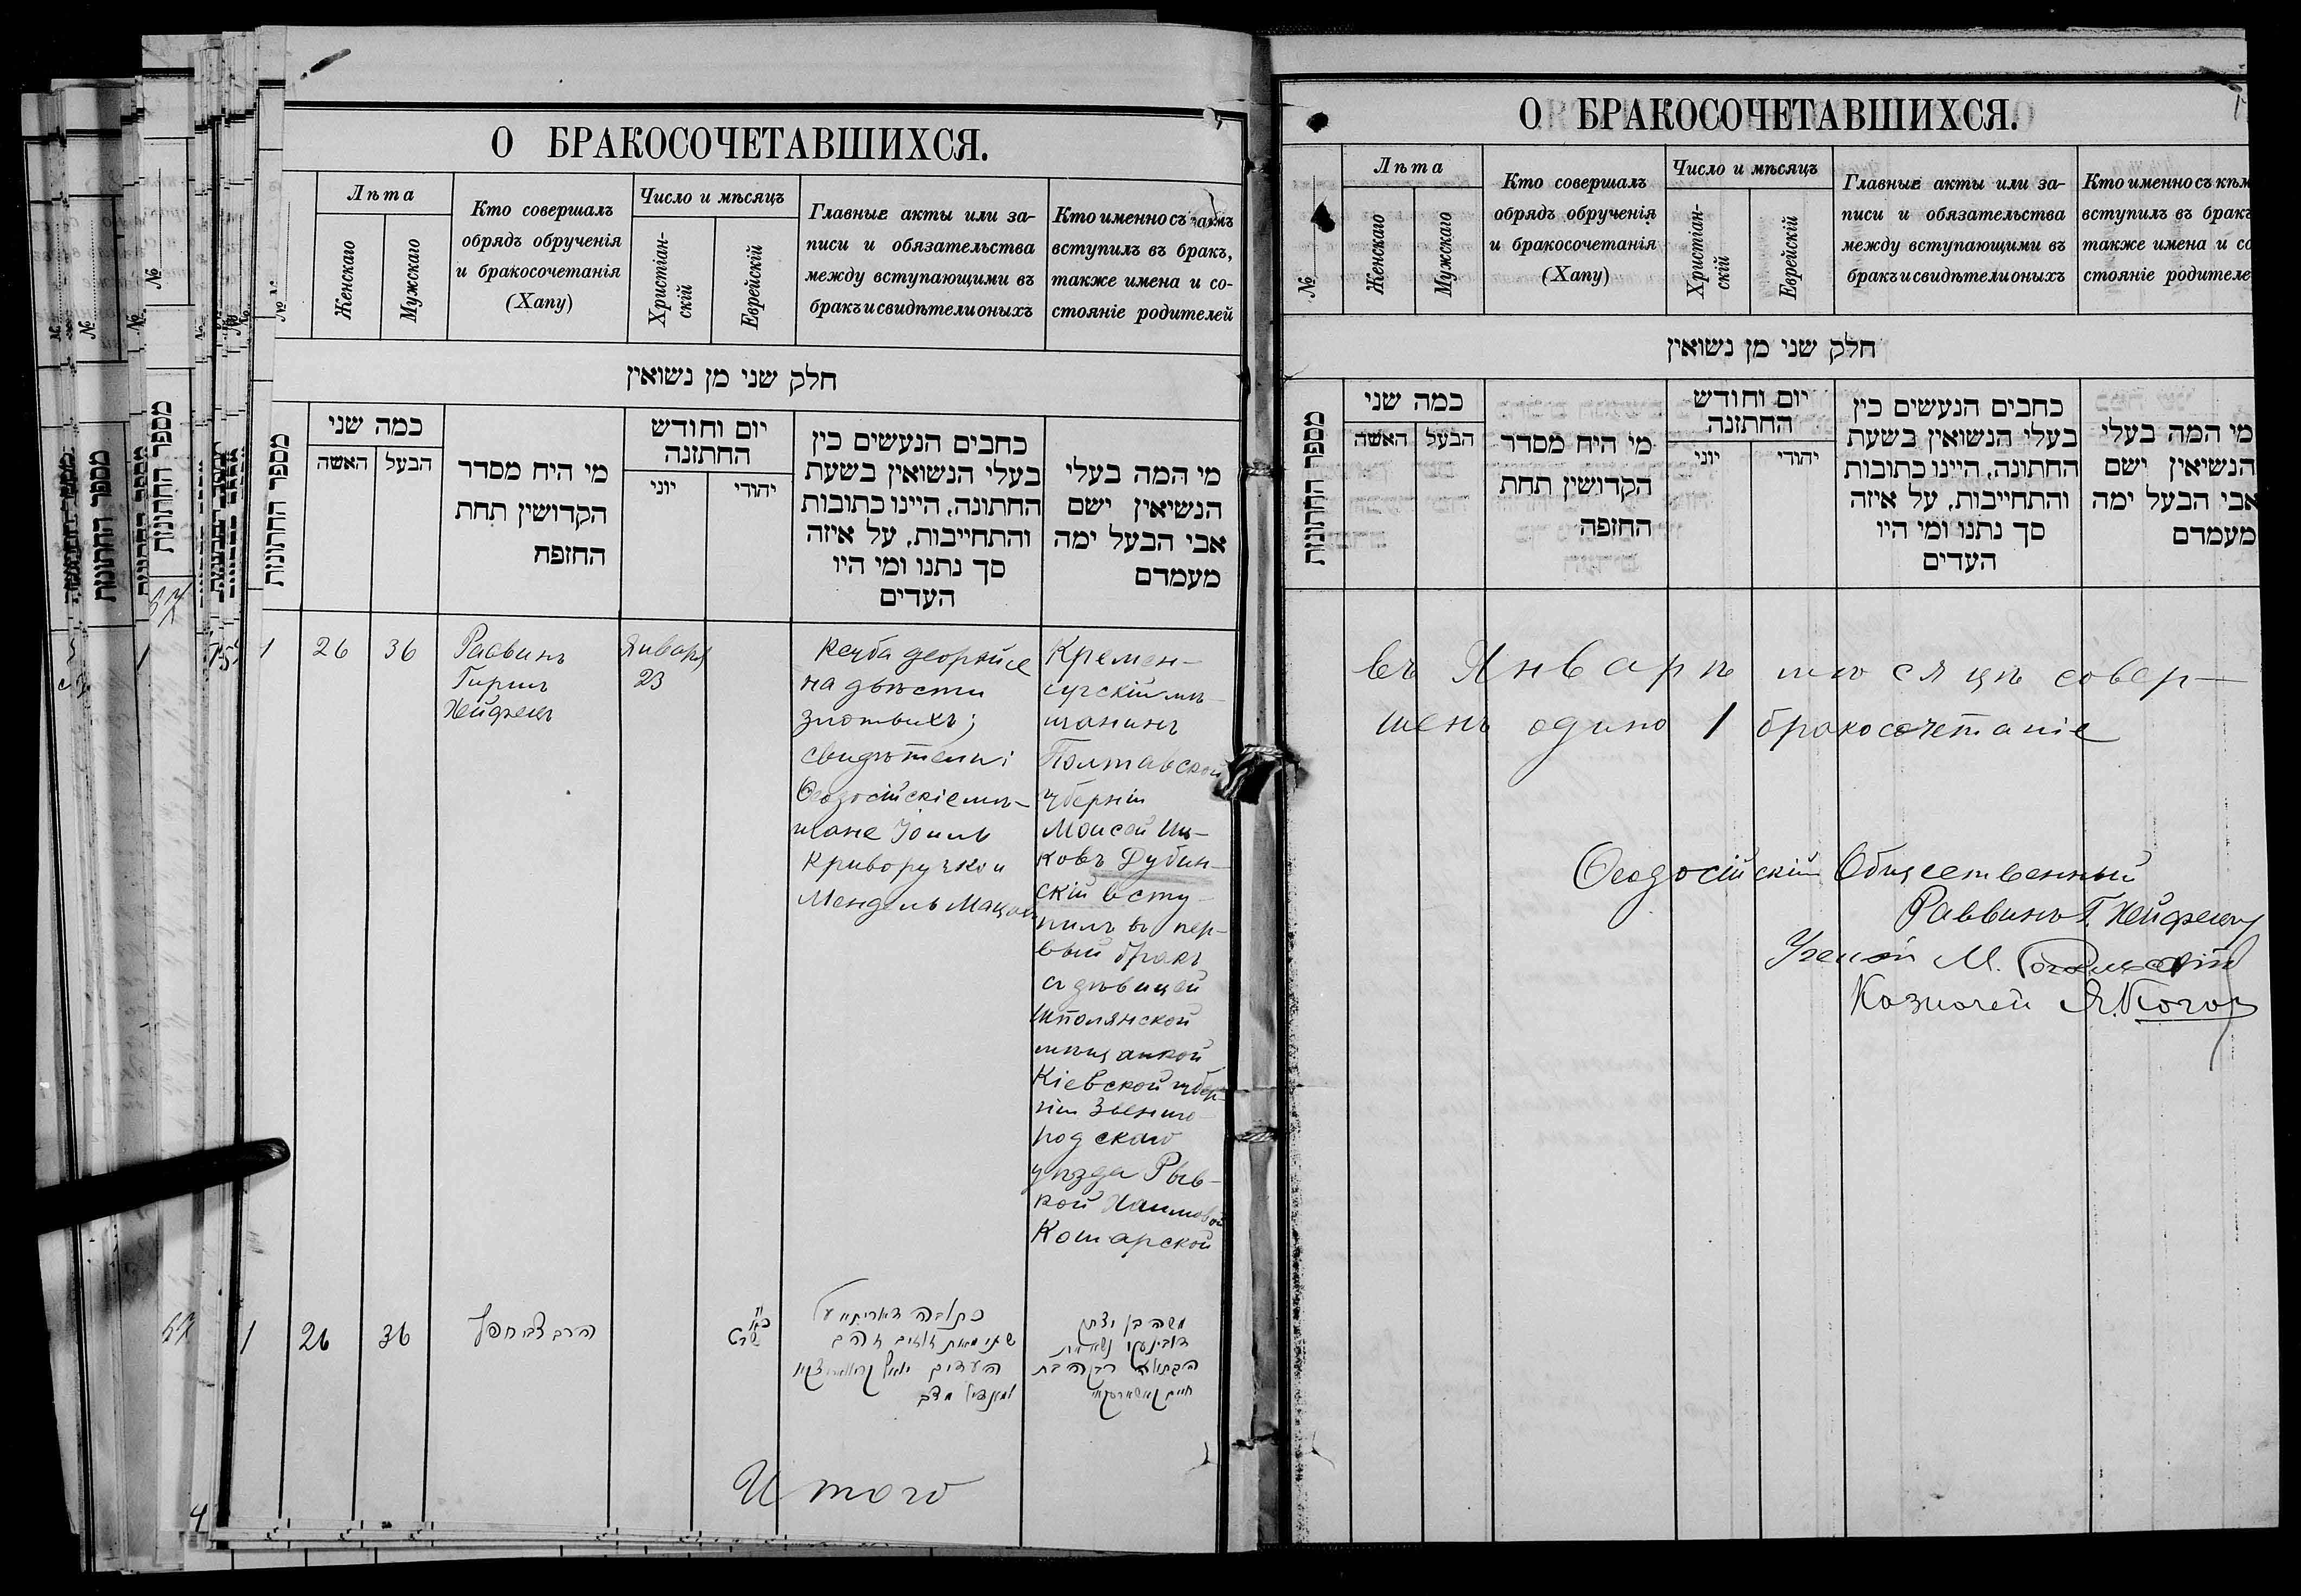 О БРАКОСОЧЕТАВШИХСЯ.
№
Лѣта
Женскаго
Мужскаго
Кто совершалъ
обрядъ обрученія
и бракосочетанія
(Хапу)
Число и мѣсяцъ
Христіан-
скій
Еврейскій
Главные акты или за-
писи и обязательства
между вступающими въ
бракъ и свидѣтели оныхъ
Кто именно съ кѣмъ
вступилъ въ бракъ,
также имена и со-
стояніе родителей
חלק שני מן נשואין
מספר החתונות
כמה שני
האשה
הבעל
מי היח מסדר
הקדושין תחת
החזפח
יום וחודש
החתזנה
יוני
יהודי
כחבים הנעשים כין
בעלי הנשואין בשעת
החתונה, היינו כתובות
והתחייבות, על איזה
סך נתנו ומי היו
העדים
מי המה בעלי
הנשיאין ישם
אבי הבעל ימה
מעמדם
1
26
36
Раввинъ
Гиршъ
Хейфецъ
Января
23
на двѣсти
злотыхъ;
свидѣтели:
Ѳеодосійскіе мѣ-
щане Іоиль
Криворучко и
Мендель
Кремен-
чугскій мѣ-
щанинъ
Полтавской
губерніи
Моисей Иц-
ковъ Дубин-
скій всту-
пилъ въ пер-
вый бракъ
съ дѣвицей
Шполянской
мѣщанкой
Кіевской губер-
ніи Звениго-
родскаго
уѣзда Рыв-
кой Хаимовой
Кошарской
1
26
36
הרב צבי חפץ
כתובה דאורייתא על
שתי מאות זוזים זהב
העדים יואל
משה בן יצחק
דובינסקי נשא את
הבתולה רבקה בת
חיים קאשארסקי
Итого
О БРАКОСОЧЕТАВШИХСЯ.
№
Лѣта
Женскаго
Мужскаго
Кто совершалъ
обрядъ обрученія
и бракосочетанія
(Хапу)
Число и мѣсяцъ
Христіан-
скій
Еврейскій
Главные акты или за-
писи и обязательства
между вступающими въ
бракъ и свидѣтели оныхъ
Кто именно съ кѣм
вступилъ въ бракъ
также имена и со
стояніе родителе
חלק שני מן נשואין
מספר החתונות
כמה שני
האשה
הבעל
מי היח מסדר
הקדושין תחת
החזפה
יום וחודש
החתזנה
יוני
יהודי
כחבים הנעשים כין
בעלי הנשואין בשעת
החתונה, היינו כתובות
והתחייבות, על איזה
סך נתנו ומי היו
העדים
מי המה בעלי
הנשיאין ישם
אבי הבעל ימה
מעמדם
въ Январѣ мѣсяцѣ совер-
шенъ одино 1 бракосочетаніе
Ѳеодосійскій Общественный
Раввинъ Г. Хейфецъ
Ученый М.
Казначей Я. Коган